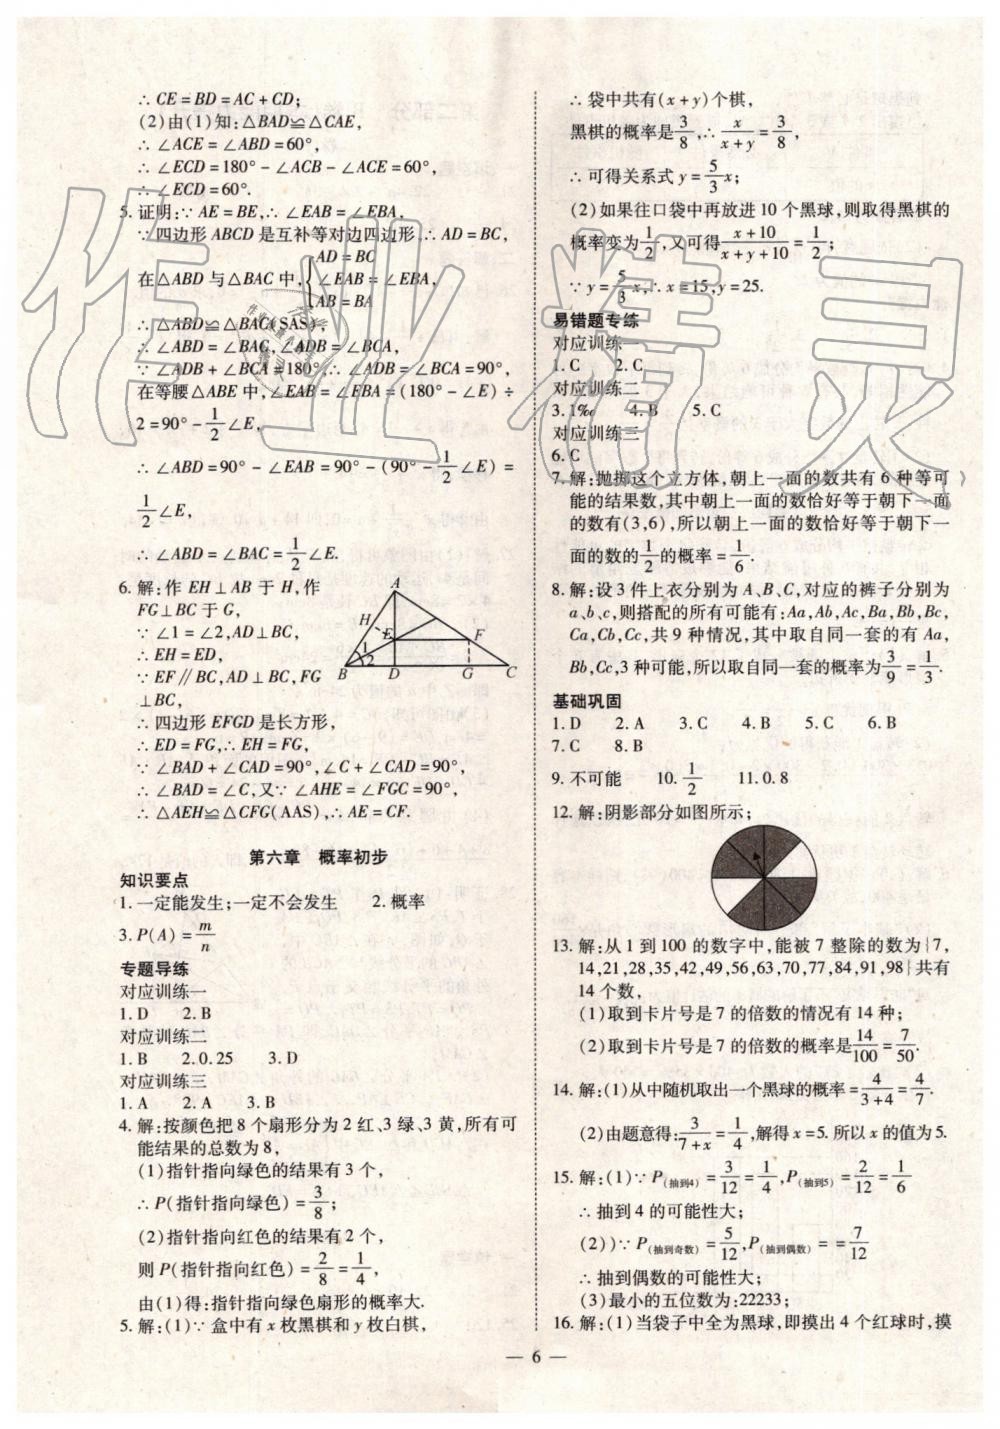 ∴ CE=BD=AC+CD;
(2)由(1)知:△BAD≌△CAE,
∴ ∠ACE=∠ABD=60°,
∴ ∠ECD=180°-∠ACB-∠ACE=60°,
∴ ∠ECD=60°.
5. 证明:∵ AE=BE,∴ ∠EAB=∠EBA,
∵ 四边形 ABCD 是互补等对边四边形,∴ AD=BC,
在△ABD 与△BAC 中,{AD=BC
∠EAB=∠EBA,
AB=BA
∴ △ABD≌△BAC(SAS),
∴ ∠ABD=∠BAC,∠ADB=∠BCA,
∵ ∠ADB+∠BCA=180°,∴ ∠ADB=∠BCA=90°,
在等腰△ABE 中,∠EAB=∠EBA=(180°-∠E)÷
2=90°-1/2∠E,
∴ ∠ABD=90°-∠EAB=90°-(90°-1/2∠E)=
1/2∠E,
∴ ∠ABD=∠BAC=1/2∠E.
6. 解:作 EH⊥AB 于 H,作
FG⊥BC 于 G,
∵ ∠1=∠2,AD⊥BC,
∴ EH=ED,
∵ EF∥BC,AD⊥BC,FG
⊥BC,
∴ 四边形 EFGD 是长方形,
∴ ED=FG,∴ EH=FG,
∵ ∠BAD+∠CAD=90°,∠C+∠CAD=90°,
∴ ∠BAD=∠C,又∵ ∠AHE=∠FGC=90°,
∴ △AEH≌△CFG(AAS),∴ AE=CF.
A
H
E
F
1
2
B D G C
第六章 概率初步
知识要点
1. 一定能发生;一定不会发生 2. 概率
3. P(A)=m/n
专题导练
对应训练一
1. D 2. B
对应训练二
1. B 2. 0.25 3. D
对应训练三
1. A 2. A 3. B
4. 解:按颜色把 8 个扇形分为 2 红、3 绿、3 黄,所有可
能结果的总数为 8,
(1)指针指向绿色的结果有 3 个,
∴ P(指针指向绿色)=3/8;
(2)指针指向红色的结果有 2 个,
则 P(指针指向红色)=2/8=1/4,
由(1)得:指针指向绿色扇形的概率大.
5. 解:(1)∵ 盒中有 x 枚黑棋和 y 枚白棋,
∴ 袋中共有(x+y)个棋,
黑棋的概率是3/8,∴ x/(x+y)=3/8,
∴ 可得关系式 y=5/3x;
(2)如果往口袋中再放进 10 个黑球,则取得黑棋的
概率变为1/2,又可得(x+10)/(x+y+10)=1/2;
∵ y=5/3x,∴ x=15,y=25.
易错题专练
对应训练一
1. C 2. C
对应训练二
3. 1‰ 4. B 5. C
对应训练三
6. C
7. 解:抛掷这个立方体,朝上一面的数共有 6 种等可
能的结果数,其中朝上一面的数恰好等于朝下一面
的数有(3,6),所以朝上一面的数恰好等于朝下一
面的数的1/2的概率=1/6.
8. 解:设 3 件上衣分别为 A、B、C,对应的裤子分别为
a、b、c,则搭配的所有可能有:Aa,Ab,Ac,Ba,Bb,Bc,
Ca,Cb,Cc,共 9 种情况,其中取自同一套的有 Aa,
Bb,Cc,3 种可能,所以取自同一套的概率为3/9=1/3.
基础巩固
1. D 2. A 3. C 4. B 5. C 6. B
7. C 8. B
9. 不可能 10. 1/2 11. 0.8
12. 解:阴影部分如图所示;
13. 解:从 1 到 100 的数字中,能被 7 整除的数为{7,
14,21,28,35,42,49,56,63,70,77,84,91,98}共有
14 个数,
(1)取到卡片号是 7 的倍数的情况有 14 种;
(2)取到卡片号是 7 的倍数的概率是14/100=7/50.
14. 解:(1)从中随机取出一个黑球的概率=4/(3+4)=4/7.
(2)由题意得:3/(7+x)=1/4,解得 x=5. 所以 x 的值为 5.
15. 解:(1)∵ P(抽到4)=3/12=1/4,P(抽到5)=2/12=1/6
∴ 抽到 4 的可能性大;
(2))∵ P(抽到奇数)=5/12,P(抽到偶数)==7/12
∴ 抽到偶数的可能性大;
(3)最小的五位数为:22233;
16. 解:(1)当袋子中全为黑球,即摸出 4 个红球时,摸
— 6 —
作业精灵